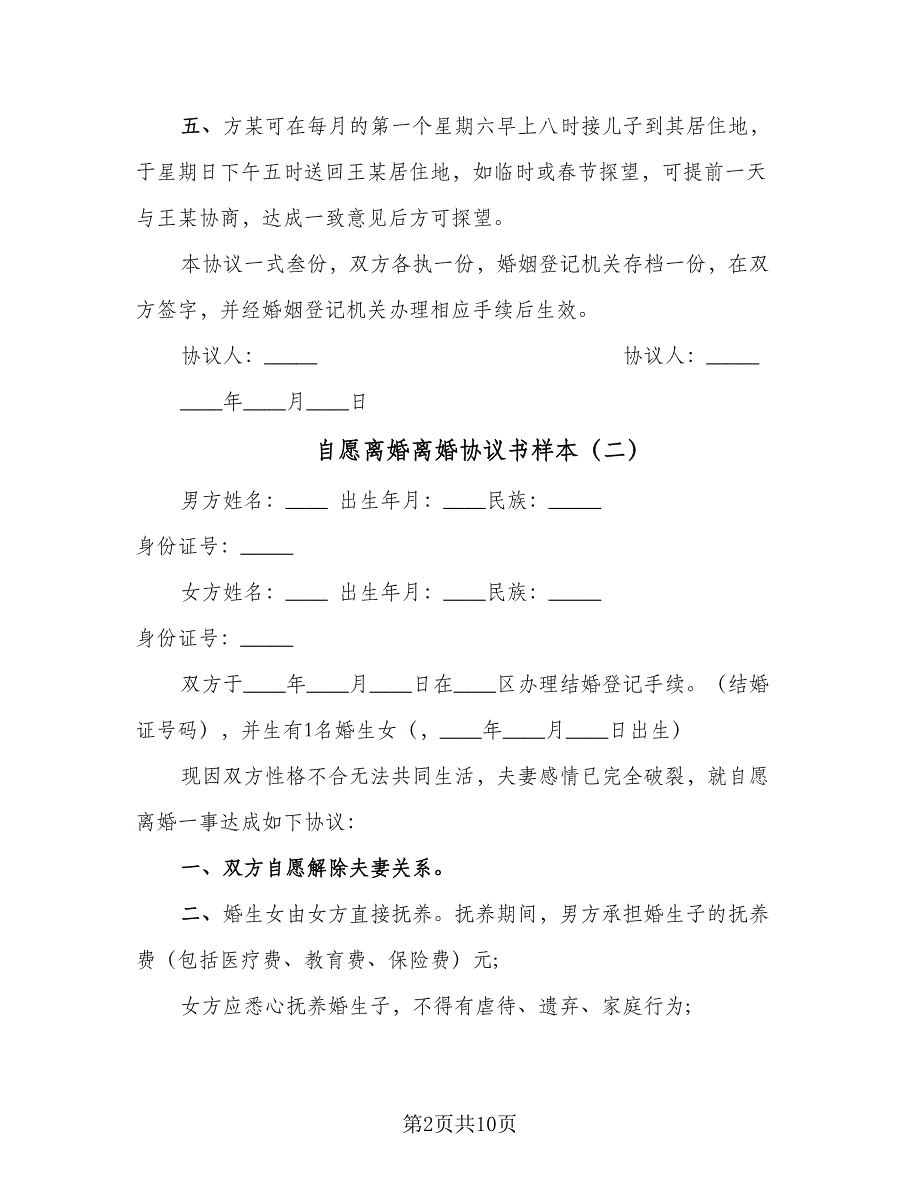 五、方某可在每月的第一个星期六早上八时接儿子到其居住地，
于星期日下午五时送回王某居住地，如临时或春节探望，可提前一天
与王某协商，达成一致意见后方可探望。
本协议一式叁份，双方各执一份，婚姻登记机关存档一份，在双
方签字，并经婚姻登记机关办理相应手续后生效。
协议人：_____ 协议人：_____
____年____月____日
自愿离婚离婚协议书样本（二）
男方姓名：____ 出生年月：____民族：_____
身份证号：_____
女方姓名：____ 出生年月：____民族：_____
身份证号：_____
双方于____年____月____日在____区办理结婚登记手续。（结婚
证号码），并生有1名婚生女（，____年____月____日出生）
现因双方性格不合无法共同生活，夫妻感情已完全破裂，就自愿
离婚一事达成如下协议：
一、双方自愿解除夫妻关系。
二、婚生女由女方直接抚养。抚养期间，男方承担婚生子的抚养
费（包括医疗费、教育费、保险费）元；
女方应悉心抚养婚生子，不得有虐待、遗弃、家庭行为；
第2页共10页